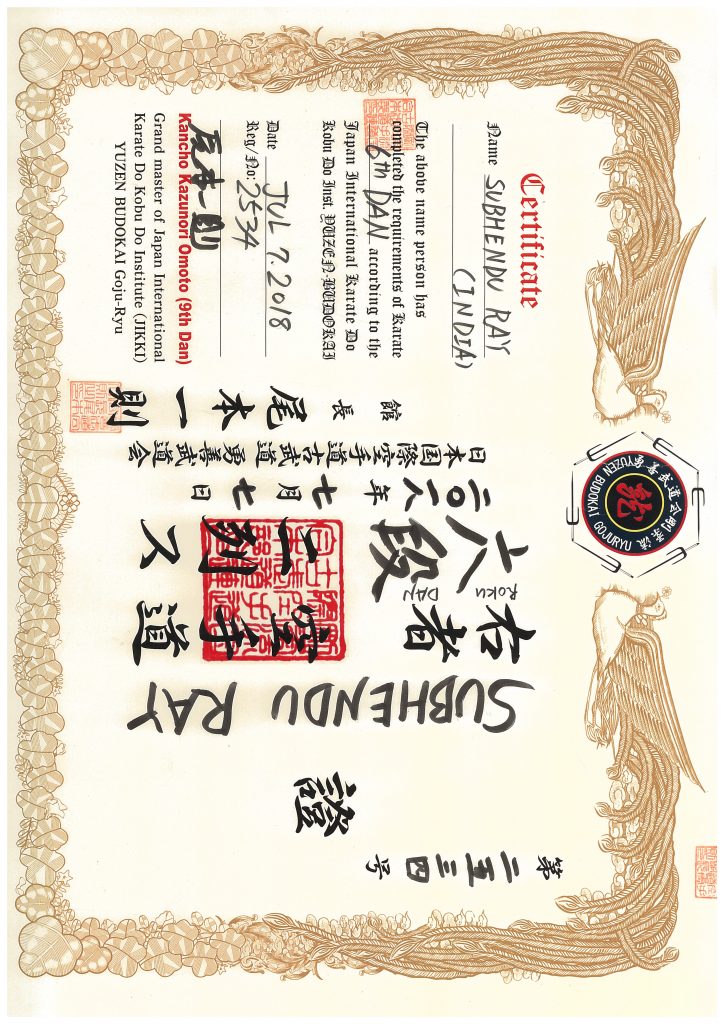 YUZEN BUDOKAI GOJURYU
勇善武道会剛柔流
Certificate
Name SUBHENDU RAY
(INDIA)
The above name person has
completed the requirements of Karate
6th DAN according to the
Japan International Karate Do
Kobu Do Inst. YUZEN-BUDOKAI
Date JUL 7. 2018
Reg/No: 2534
尾本一則
Kancho Kazunori Omoto (9th Dan)
Grand master of Japan International
Karate Do Kobu Do Institute (JIKKI)
YUZEN BUDOKAI Goju-Ryu
第二五三四号
證
SUBHENDU RAY
右者空手道
六段ニ列ス
ROKU DAN
二〇一八年七月七日
日本国際空手道古武道勇善武道会
館長 尾本一則